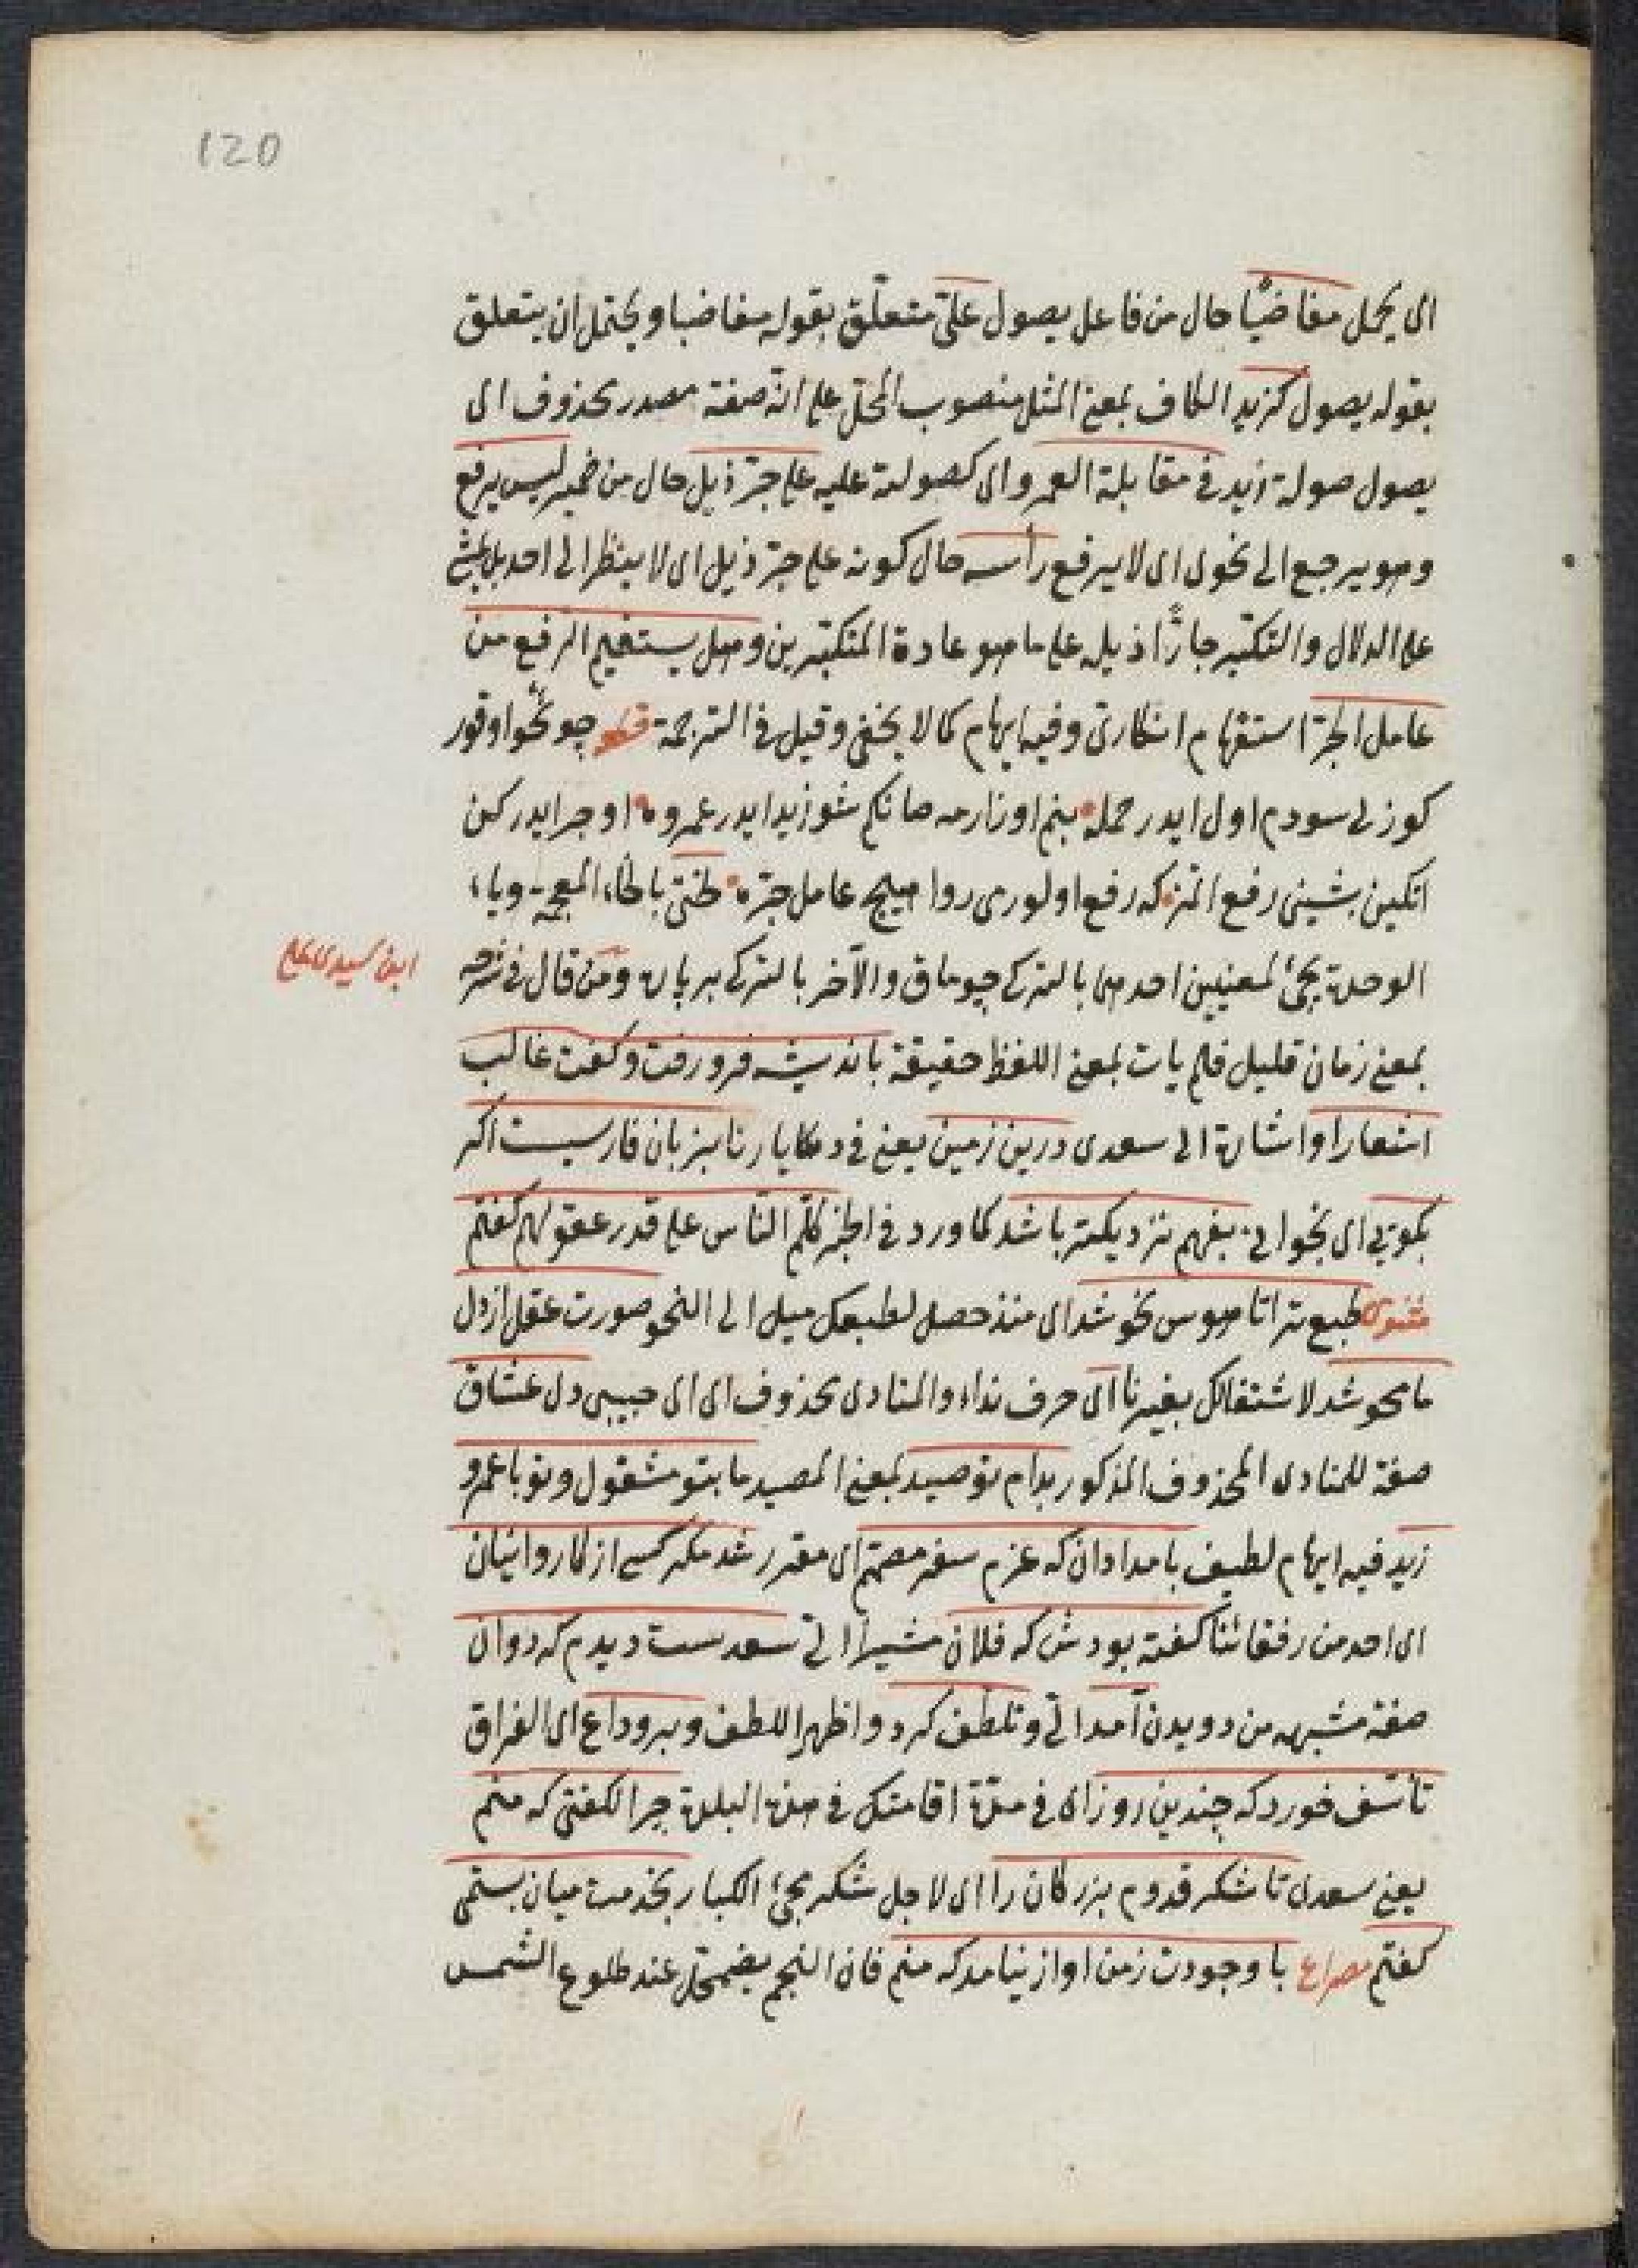 120
ای یحمل مغاضبًا حال من فاعل یصول علیّ متعلّق بقوله مغاضبا و یحتمل ان یتعلق
بقوله یصول کزید الکاف بمعنی المثل منصوب المحلّ علی انّه صفة مصدر محذوف ای
یصول صولة زید فی مقابلة العمرو ای کصولته علیه علی جرّ ذیل حال من ضمیر لیس یرفع
و هو یرجع الی نحوی ای لا یرفع رأسه حال کونه علی جرّ ذیل ای لا ینظر الی احد بل یمشی
علی الدلال والتکبّر جارًّا ذیله علی ما هو عادة المتکبّرین و هل یستقیم الرفع من
عامل الجرّ استفهام انکاریّ و فیه ایهام کما لا یخفی و قیل فی الترجمة چو نحوا وقور
کوزلی سودم اول ایدر حمله بنم اوزارمه صانکم شو زید ایدر عمروه او جر ایدر کن
اتکین بشینی رفع اتمز که رفع اولوری روا هیچ عامل جرّه لختی بالخاء المعجمة و یاء
الوحدة یجئ لمعنیین احدهما بالترکی چوماق والآخر بالترکی بر پاره و من قال فی شرحه
ابن سیدی علی
بمعنی زمان قلیل فلم یأت بمعنی اللفظ حقیقة باندیشه فرو رفت و کفت غالب
اشعار او اشارة الی سعدی درین زمین یعنی فی دیارنا بزبان فارسیست اکر
بکویی ای بخوانی بفهم نزدیکتر باشد کما ورد فی الخبر کلّم الناس علی قدر عقولهم کفتم
مثنوی طبع ترا تا هوس نحو شد ای منذ حصل لطبعک میل الی النحو صورت عقل از دل
ما محو شد لاشتغالک بغیرنا ای حرف نداء والمنادی محذوف ای ای حبیبی دل عشاق
صفة للمنادی المحذوف المذکور بدام تو صید بمعنی المصید ما بتو مشغول و تو با عمرو
زید فیه ایهام لطیف بامدادان که عزم سفر مصمّم ای مقرر شد مکر کسی از کاروانیان
ای احد من رفقائنا کفته بودش که فلان مشیرا الیّ سعدیست دیدم که دوان
صفة مشبهه من دویدن آمد الیّ و تلطّف کرد و اظهر اللطف و بر وداع ای الفراق
تأسّف خورد که چندین روز ای فی مدّة اقامتک فی هذه البلدة چرا نکفتی که منم
یعنی سعدی تا شکر قدوم بزرکان را ای لاجل شکر مجئ الکبار بخدمت میان بستمی
کفتم مصراع با وجودت ز من اواز نیامد که منم فان النجم یضمحلّ عند طلوع الشمس